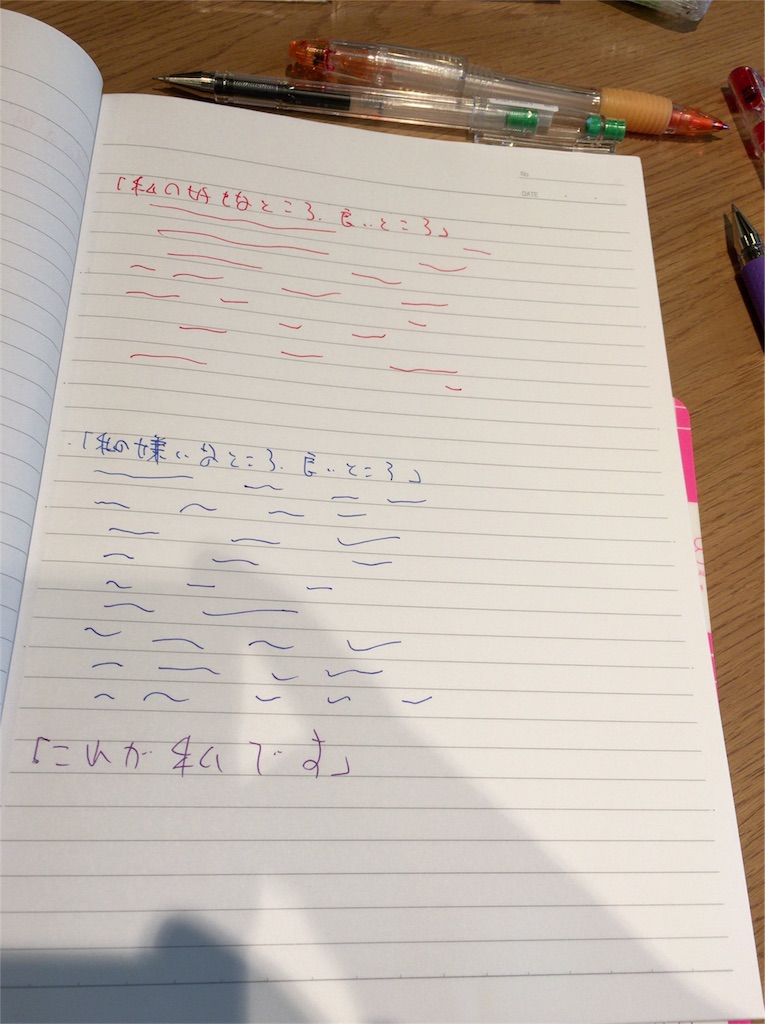 No.
DATE
「私の好きなところ、良いところ」
「私の嫌いなところ、良いところ」
「これが私です」